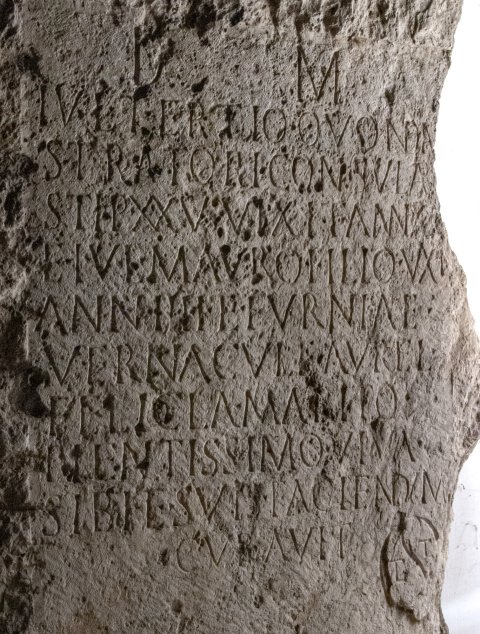 D M
IVL TERTIO QVONDA
STRATORI CONSVLA
STIP XXV VIXIT ANN X
ET IVL MAVRO FILIO VXI
ANN IIII ET FVRNIAE
VERNACVLE AVREL
FELICLA MARITO
PIENTISSIMO VIVA
SIBI E SVIS FACIENDVM
CVRAVIT